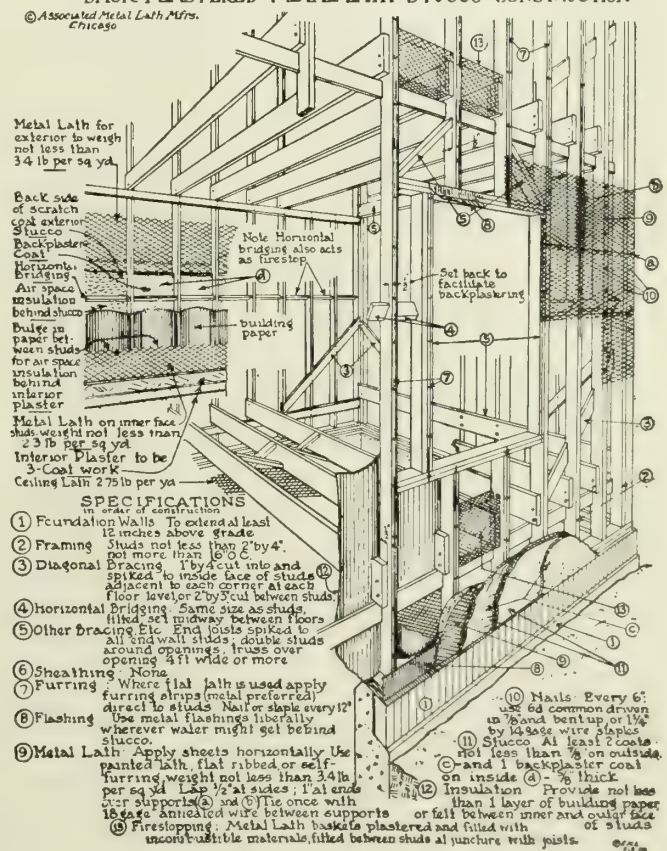 BASIC PLASTERED METAL LATH STUCCO CONSTRUCTION
© Associated Metal Lath Mfrs.
Chicago
Metal Lath for
exterior to weigh
not less than
3.4 lb per sq yd
Back side
of scratch
coat exterior
Stucco
Backplaster
Coat
Horizontal
Bridging
Air space
insulation
behind stucco
Bulge in
paper bet-
ween studs
for air space
insulation
behind
interior
plaster
Metal Lath on inner face
studs. weight not less than
2.3 lb per sq yd
Interior Plaster to be
3-Coat work
Ceiling Lath 2.75 lb per yd
Note Horizontal
bridging also acts
as firestop
building
paper
Set back to
facilitate
backplastering
SPECIFICATIONS
in order of construction
① Foundation Walls To extend at least
12 inches above grade
② Framing Studs not less than 2" by 4",
not more than 16" O.C.
③ Diagonal Bracing 1" by 4" cut into and
spiked to inside face of studs
adjacent to each corner at each
floor level, or 2" by 3" cut between studs.
④ Horizontal Bridging. Same size as studs,
fitted, set midway between floors
⑤ Other Bracing, Etc End joists spiked to
all end wall studs; double studs
around openings, truss over
opening 4 ft wide or more
⑥ Sheathing: None
⑦ Furring: Where flat lath is used apply
furring strips (metal preferred)
direct to studs Nail or staple every 12"
⑧ Flashing Use metal flashings liberally
wherever water might get behind
stucco.
⑨ Metal Lath Apply sheets horizontally Use
painted lath, flat ribbed, or self-
furring, weight not less than 3.4 lb
per sq yd Lap ½" at sides; 1" at ends
over supports ⓐ and ⓑ Tie once with
18 gage annealed wire between supports
⑩ Nails: Every 6";
use 6d common driven
in ⅞" and bent up, or 1¼"
by 14 gage wire staples
⑪ Stucco At least 2 coats
not less than ⅞" on outside,
ⓒ and 1 backplaster coat
on inside ⓓ - ⅝" thick
⑫ Insulation Provide not less
than 1 layer of building paper
or felt between inner and outer face
of studs
⑬ Firestopping: Metal Lath baskets plastered and filled with
incombustible materials, fitted between studs at juncture with joists.